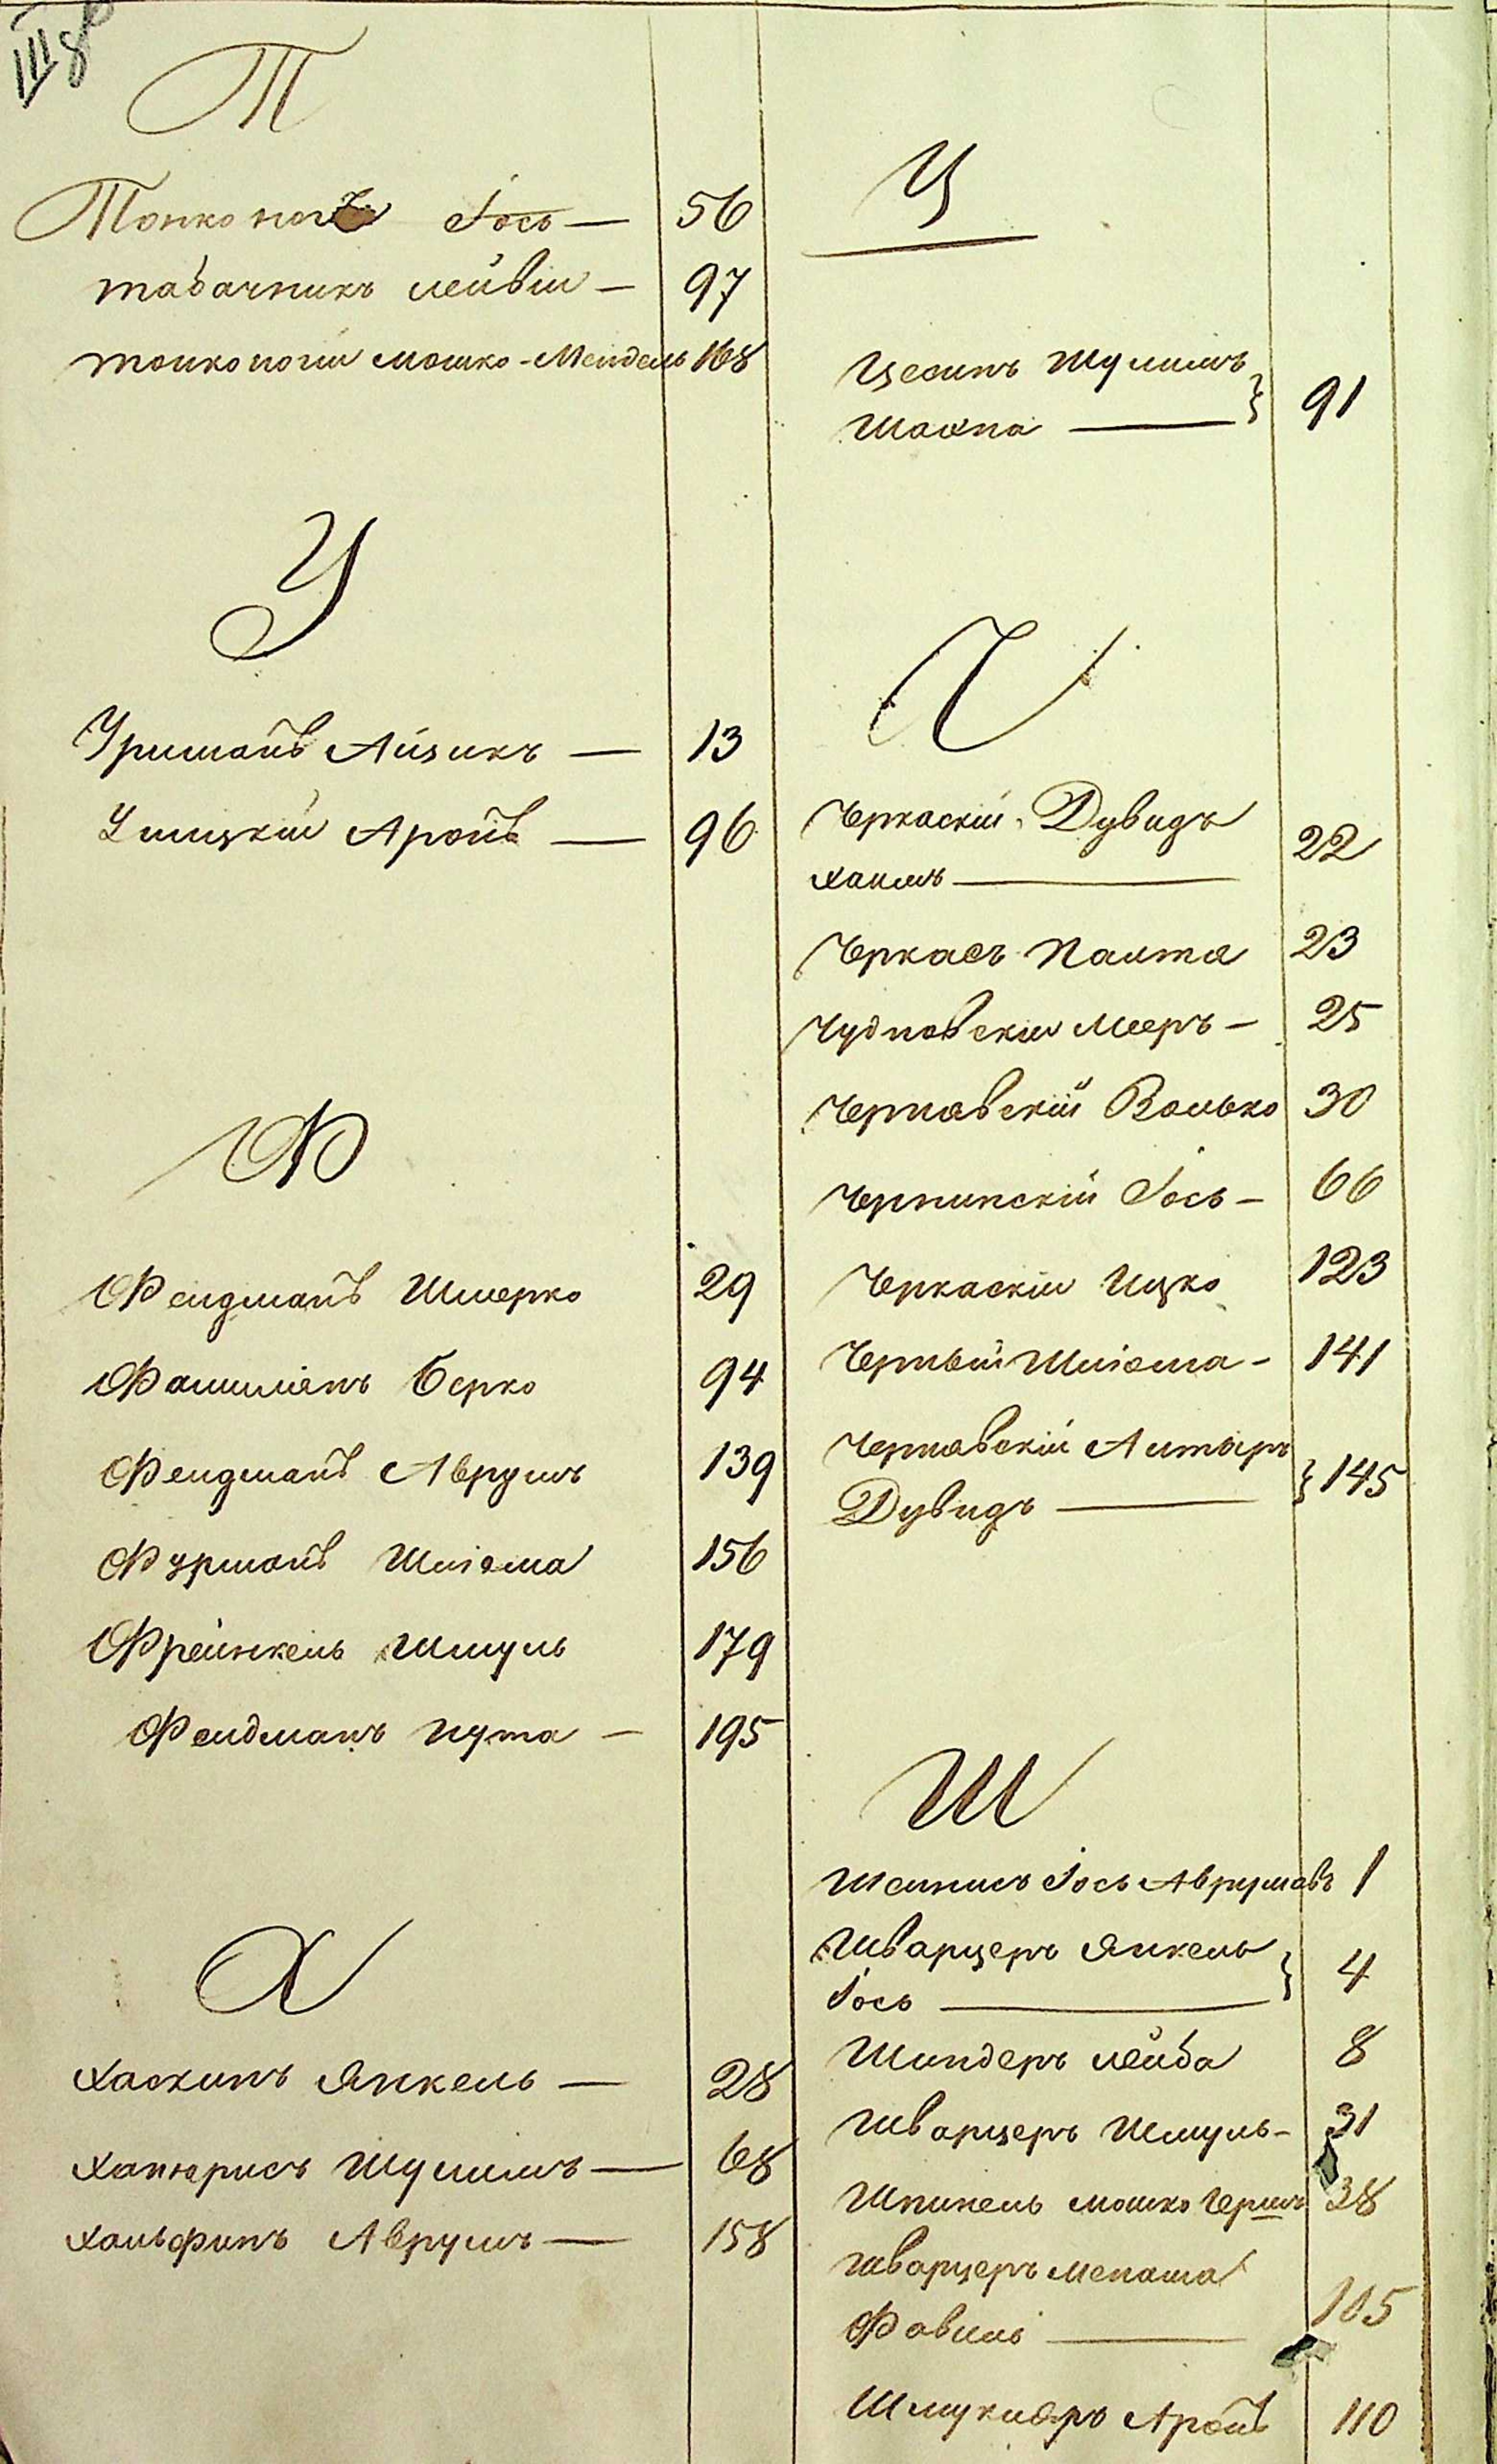 Т
Тонконогъ Іось — 56
Табачникъ Лейвій — 97
Тонконогій Мошко-Мендель 168
У
Уришанъ Айзикъ — 13
Ушицкій Аронъ — 96
Ф
Фелдманъ Шмерко 29
Фамилiянъ Берко 94
Фелдманъ Аврумъ 139
Фурманъ Шлiома 156
Фрейнкель Шмуль 179
Фелдманъ Нута — 195
Х
Хаскинъ Янкель — 28
Ханюрисъ Шулимъ — 68
Хальфинъ Аврумъ — 158
Ц
Цесинъ Шулимъ
Шахна — } 91
Ч
Черкаскій Дувидъ
Хаимъ — 22
Черкасъ 23
Чудновскій Мееръ — 25
Чернавскій Волько 30
Чернинскій Іось — 66
Черкаскій Ицко 123
Черный Шлiома — 141
Чернавскій Алтыръ
Дувидъ — } 145
Ш
Іось Аврумовъ 1
Шварцеръ Янкель
Іось — } 4
Шиндеръ Лейба 8
Шварцеръ Шмуль — 31
Шпинель Мошко Гершъ 38
Шварцеръ Менаша
Фавиль — 105
Шмуклеръ Аронъ 110